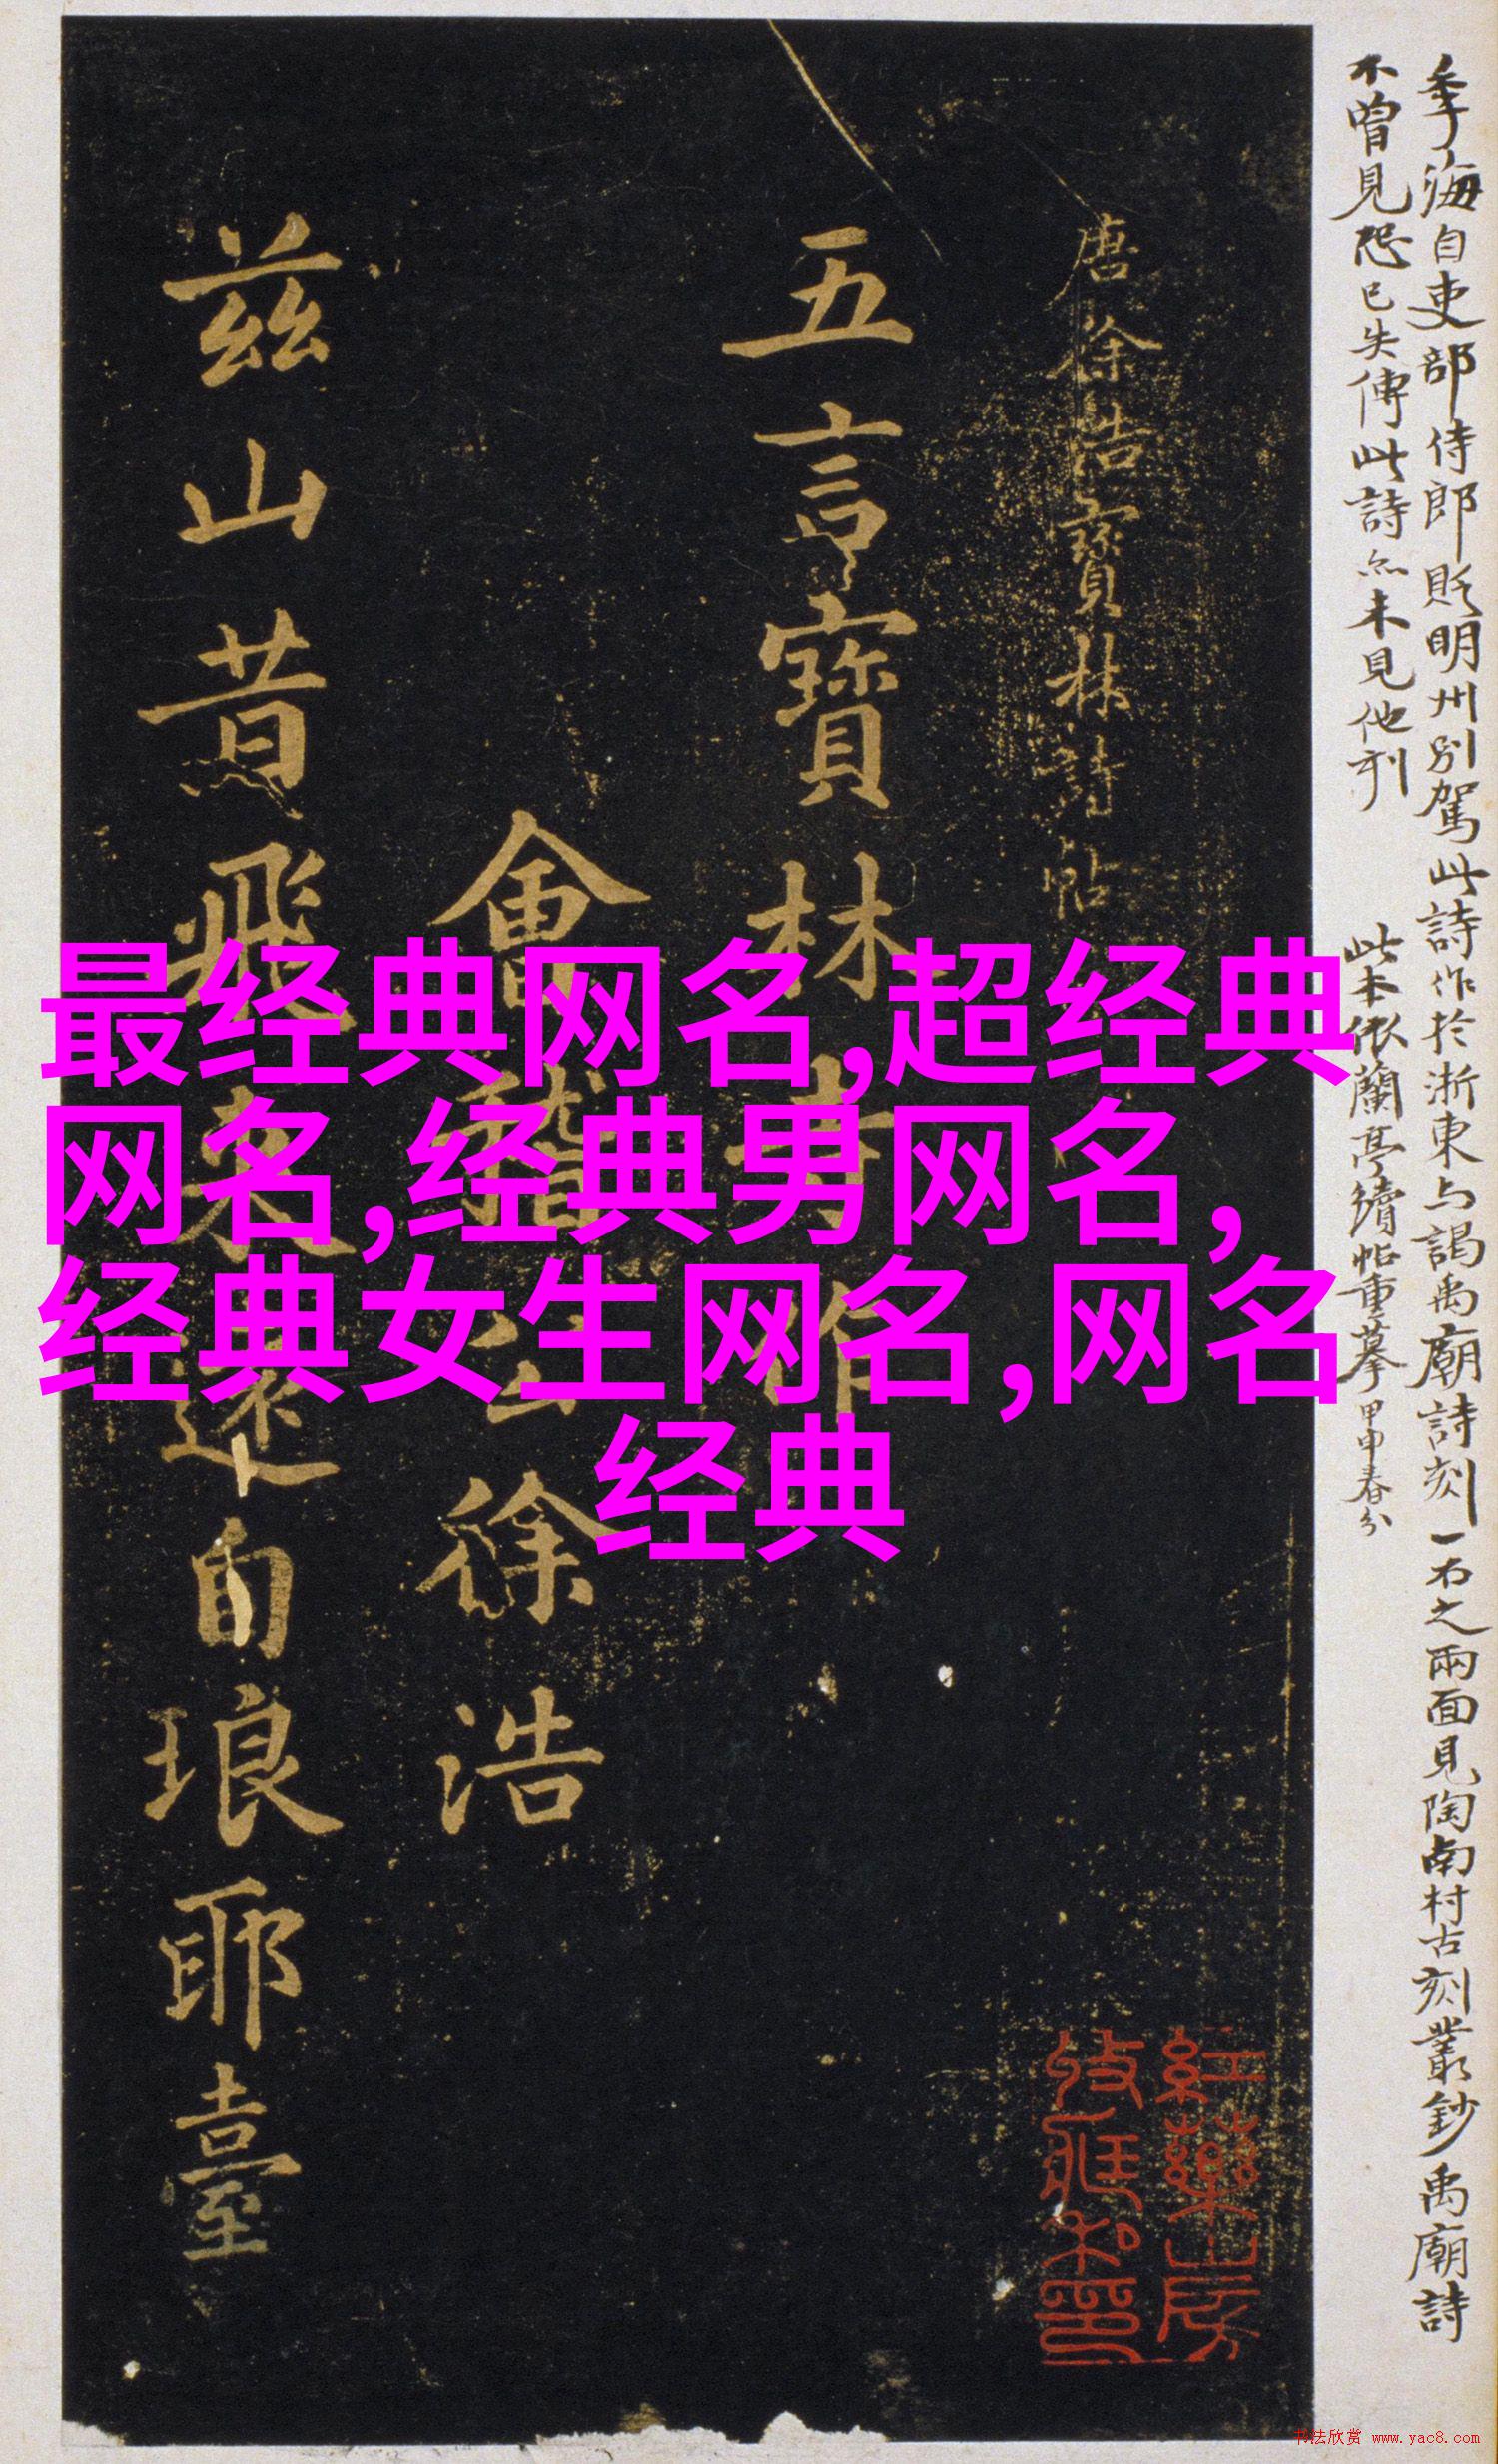 季海自吏部侍郎貶明州別駕此詩作於浙東与謁禹廟詩刻一石之兩面見陶南村古刻叢鈔禹廟詩
不曾見恐已失傳此詩亦未見他刊
此本依蘭亭續帖重摹甲申春分
唐徐浩寶林詩帖
五言寶林寺作
會稽公徐浩
茲山昔飛來遠自琅耶臺
最经典网名,超经典
网名,经典男网名,
经典女生网名,网名
经典
紅藥山房
收藏私印
书法欣赏 www.yac8.com